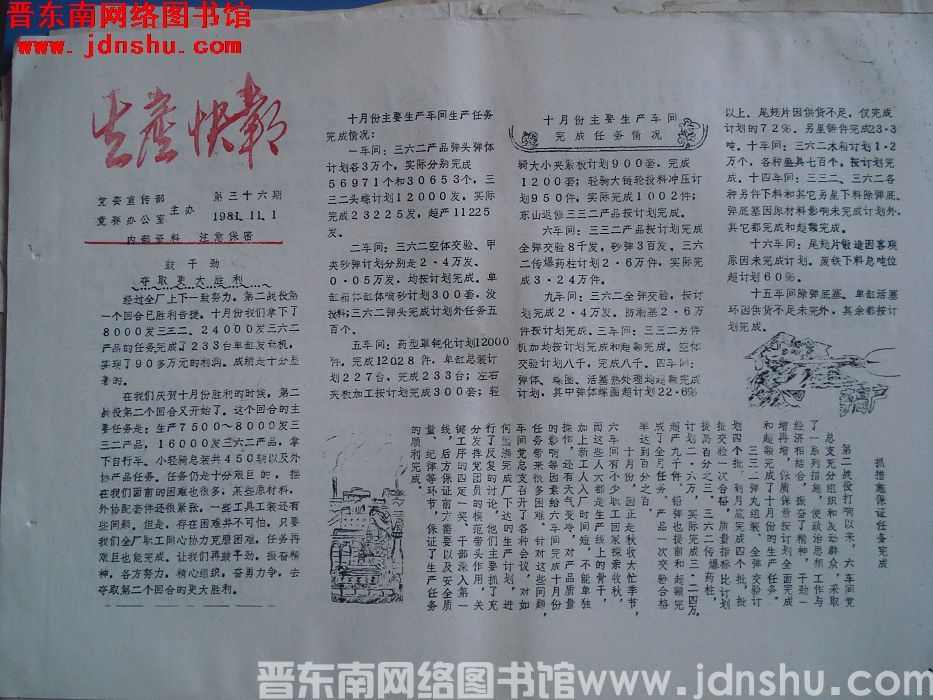 晋东南网络图书馆
www.jdnshu.com
生产快报
党委宣传部
党委办公室
主办
第三十六期
1981.11.1
内部资料 注意保密
鼓干劲
夺取更大胜利
经过全厂上下一致努力,第二战役第
一个回合已胜利告捷,十月份我们拿下了
8000发三三二、24000发三六二
产品的任务完成了233台单缸发动机,
实现了90多万元的利润。成绩是十分显
著的。
在我们庆贺十月份胜利的时候,第二
战役第二个回合又开始了。这个回合的主
要任务是:生产7500~8000发三
三二产品,16000发三六二产品,拿
下自行车、小轻骑总装共450辆以及外
协产品任务。任务仍是十分艰巨的,摆
在我们面前的困难也很多。某些原材料,
外协配套件还很紧张,一些工具工装还有
些问题。但是,存在困难并不可怕,只要
我们全厂职工同心协力克服困难,任务再
艰巨也能完成。让我们再鼓干劲,振奋精
神,各方努力,精心组织,奋勇力争,去
夺取第二个回合的更大胜利。
十月份主要生产车间生产任务
完成情况:
一车间:三六二产品弹头弹体
计划各3万个,实际分别完成
56971个和30653个,三
三二头螺计划12000发,实际
完成23225发,超产11225
发。
二车间:三六二空体交验、甲
类砂弹计划分别是2·4万发、
0·05万发,均按计划完成。单
缸箱体缸体喷砂计划300套,没
投料;三六二弹头完成计划外任务五
百个。
五车间:药型罩钝化计划12000
件,完成12028件,单缸总装计
划227台,完成233台;左右
夹板加工按计划完成300套;轻
十月份主要生产车间
完成任务情况
骑大小夹紧板计划900套,完成
1200套;轻骑大链轮投料冲压计
划950件,实际完成1002件;
东山返修三三二产品按计划完成。
六车间:三三二产品按计划完成
全弹交验8千发,砂弹3百发,三六
二传爆药柱计划2·6万件,实际完
成3·24万件。
九车间:三六二全弹交验,按计
划完成2·4万发,防潮塞2·6万
件按计划完成。三车间:三三二另件
机加均按计划完成和超额完成。空体
交验计划八千,完成八千。四车间:
弹体、螺圈、活塞热处理均超额完成
计划,其中弹体螺圈超计划22·6%
以上。尾翅片因供货不足,仅完成
计划的72%。另星铸件完成23·3
吨。十车间:三六二木箱计划1·2
万个,各种盛具七百个,按计划完
成。十四车间:三三二、三六二各
种另件下料和其它另星下料除弹底、
弹底塞因原材料影响未完成计划外,
其它都完成和超额完成。
十六车间:尾翅片锻造因客观
原因未完成计划。废铁下料总吨位
超计划60%。
十五车间除弹底塞、单缸活塞
环因供货不足未完外,其余都按计
划完成。
抓措施保证任务完成
第二战役打响以来,六车间党
总支充分组织和发动群众,采取
了一系列措施,使政治思想工作与
经济相结合,振奋了精神,干劲一
增再增,保质保量按计划全面完成
和超额完成了十月份的生产任务。
三三二弹丸组装、全弹交验计
划四个批,到月底完成四个批,批
批交验一次合格,质量指标比计划
提高百分之三。三六二传爆药柱,
计划二·六万,实际完成三·二四万,
超产九千件,铅弹也提前和超额完
成了全月任务,产品一次交验合格
率达到百分之百。
十月份,因正是秋收大忙季节,
六车间有不少职工回家探亲收秋,
而这些人大都是生产线上的骨干,
加上新工人入厂时间短,不能单独
操作,还有天气变冷,对产品质量
的影响等因素给六车间完成十月份
任务带来很多困难。针对这些问题,
车间党总支召开了各种会议,对如
何圆满完成厂下达的生产计划,进
行了反复的讨论。他们主要抓了充
分发挥党团员的模范带头作用,关
键工序的四定一奖、干部深入第一
线,后方保证前方需要以及安全质
量、纪律等环节,保证了生产任务
的顺利完成。
晋东南网络图书馆www.jdnshu.com